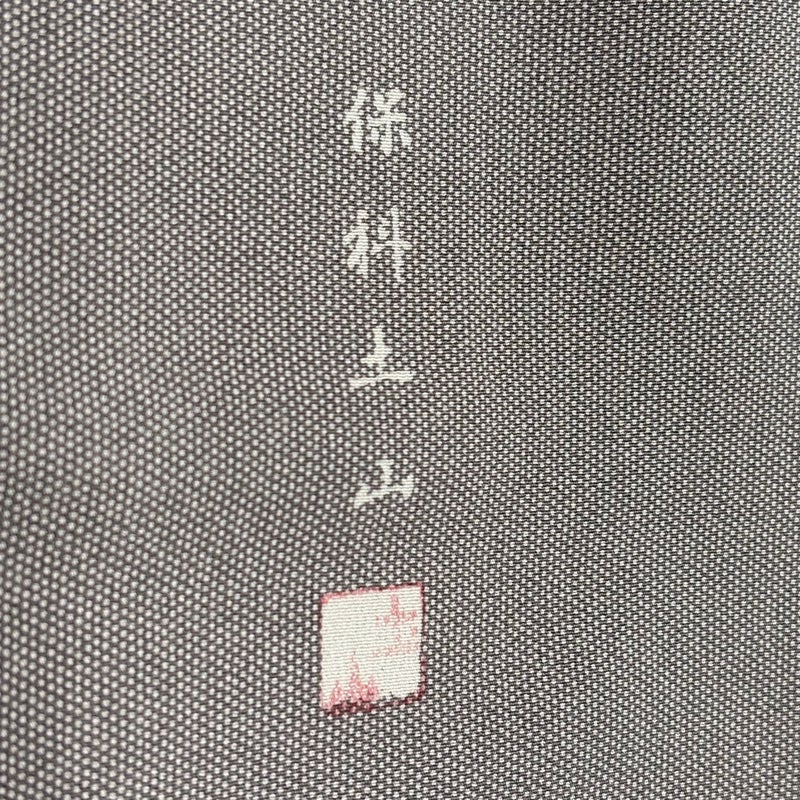 保科土山